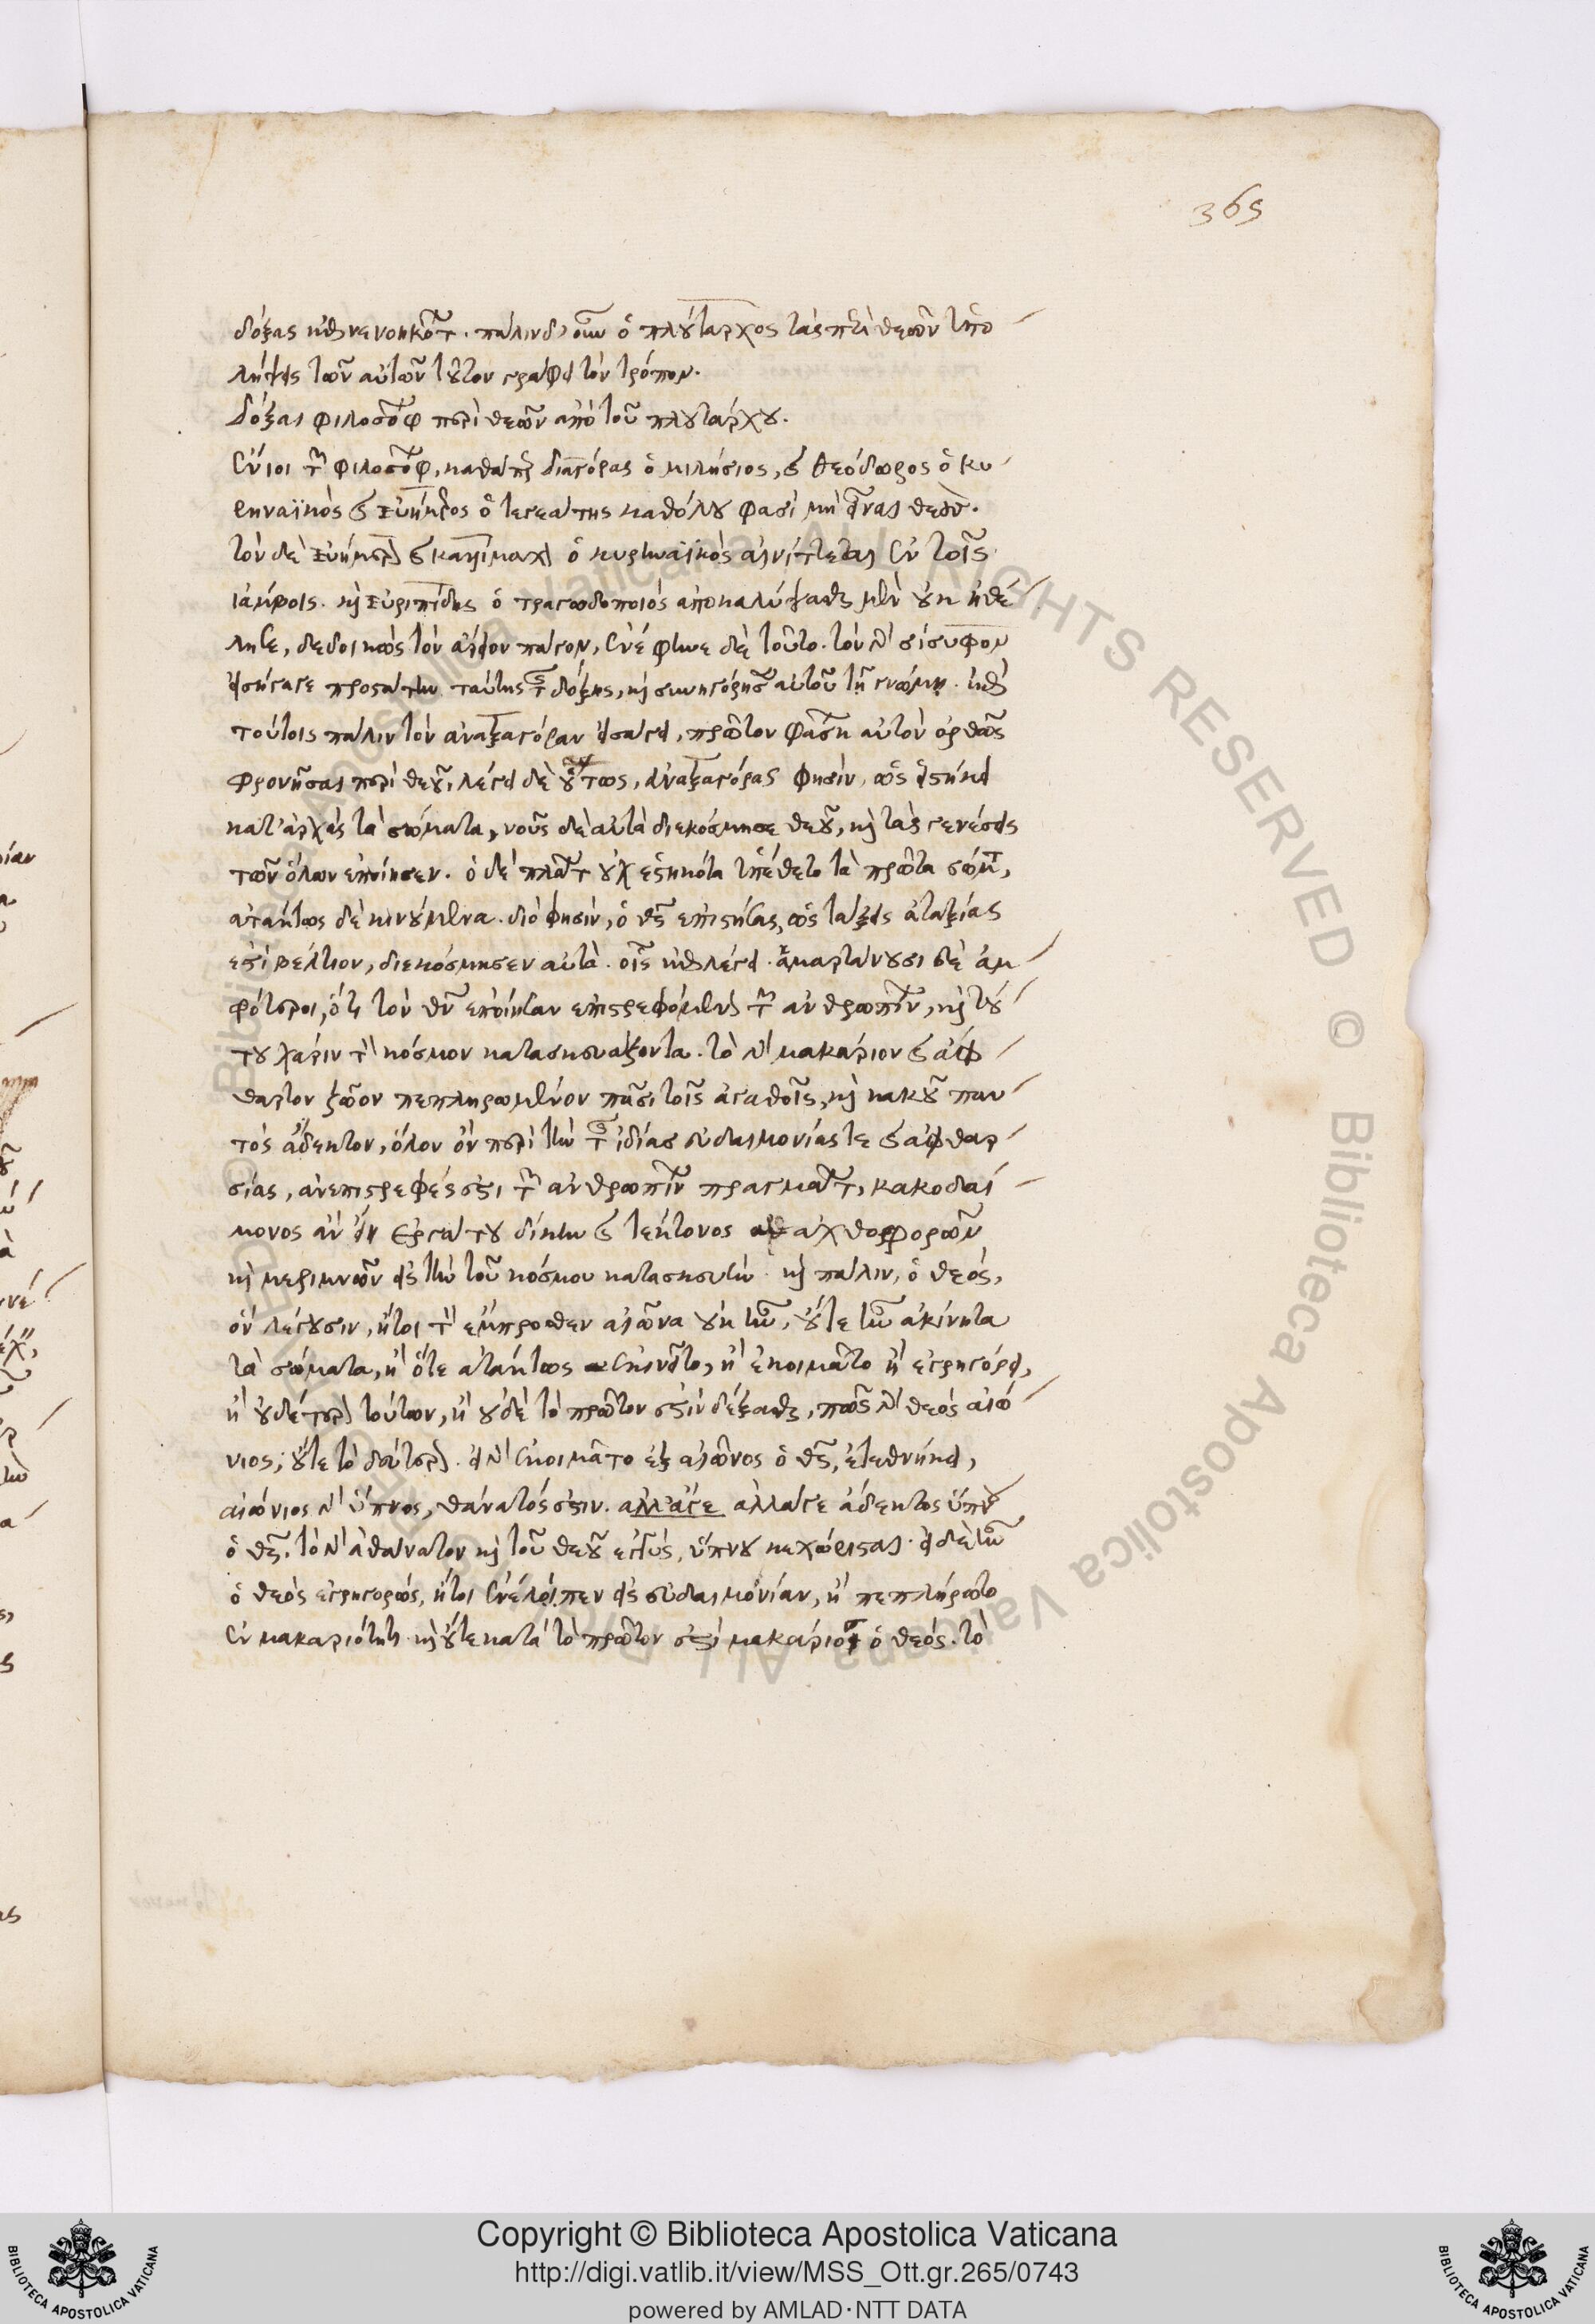 365
δόξας καὶ νενοηκότ. πάλιν δ' οὖν ὁ πλούταρχος τὰς περὶ θεῶν ὑπο
λήψεις τῶν αὐτῶν τοῦτον γράφει τὸν τρόπον.
Δόξαι φιλοσόφ περὶ θεῶν ἀπὸ τοῦ πλουτάρχου.
ἔνιοι τῶν φιλοσόφ, καθάπερ διαγόρας ὁ μιλήσιος, καὶ θεόδωρος ὁ κυ
ρηναϊκὸς καὶ εὐήμερος ὁ τεγεάτης καθόλου φασὶ μὴ εἶναι θεούς.
τὸν δὲ εὐήμερον καὶ καλλίμαχος ὁ κυρηναϊκὸς αἰνίττεται ἐν τοῖς
ἰάμβοις. καὶ εὐριπίδης ὁ τραγωδοποιὸς ἀποκαλύψασθαι μὲν οὐκ ἠθέ
λησε, δεδοικὼς τὸν ἄρειον πάγον, ἐνέφηνε δὲ τοῦτο. τὸν γὰρ σίσυφον
εἰσήγαγε προστάτην ταύτης τῆς δόξης, καὶ συνηγόρησεν αὐτοῦ τῇ γνώμῃ.
τούτοις πάλιν τὸν ἀναξαγόραν εἰσάγει, πρῶτον φάσκη αὐτὸν ὀρθῶς
φρονῆσαι περὶ θεοῦ, λέγει δὲ οὕτως, ἀναξαγόρας φησὶν, ὡς εἱστήκει
κατ' ἀρχὰς τὰ σώματα, νοῦς δὲ αὐτὰ διεκόσμησε θεοῦ, καὶ τὰς γενέσεις
τῶν ὅλων ἐποίησεν. ὁ δὲ πλάτ οὐχ ἑστηκότα ὑπέθετο τὰ πρῶτα σώμτ,
ἀτάκτως δὲ κινούμενα. διό φησιν, ὁ θς ἐπιστήσας, ὡς τάξις ἀταξίας
ἐστὶ βέλτιον, διεκόσμησεν αὐτά. οἷς λέγει. ἁμαρτάνουσι δὲ ἀμ
φότεροι, ὅτι τὸν θν ἐποίησαν ἐπιστρεφόμενον τῶν ἀνθρωπίνων, καὶ τού
του χάριν τὸν κόσμον κατασκευάζοντα. τὸ γὰρ μακάριον καὶ ἄφ
θαρτον ζῶον πεπληρωμένον πᾶσι τοῖς ἀγαθοῖς, καὶ κακοῦ παν
τὸς ἄδεκτον, ὅλον ὂν περὶ τὴν τῆς ἰδίας εὐδαιμονίας τε καὶ ἀφθαρ
σίας, ἀνεπιστρεφές ἐστι τῶν ἀνθρωπίνων πραγμάτ, κακοδαί
μονος ἂν εἴη ἐργάτου δίκην καὶ τέκτονος ἀχθοφορῶν
καὶ μεριμνῶν εἰς τὴν τοῦ κόσμου κατασκευήν. καὶ πάλιν, ὁ θεός,
ὃν λέγουσιν, ἤτοι τὸν ἔμπροσθεν αἰῶνα οὐκ ἦν, οὔτε ἦν ἀκίνητα
τὰ σώματα, ἢ ὅτε ἀτάκτως ἐκινεῖτο, ἢ ἐκοιμᾶτο ἢ ἐγρηγόρει,
ἢ οὐδέτερον τούτων, ἢ οὐδὲ τὸ πρῶτον ἐστὶν δέξασθαι, πῶς γὰρ θεὸς αἰώ
νιος; οὔτε τὸ δεύτερον. εἰ γὰρ ἐκοιμᾶτο ἐξ αἰῶνος ὁ θς, ἐτεθνήκει,
αἰώνιος γὰρ ὕπνος, θάνατός ἐστιν. ἀλλ' ἄγε ἀλλά γε ἄδεκτος ὕπνου
ὁ θς. τὸ γὰρ ἀθάνατον καὶ τοῦ θεοῦ ἐγγύς, ὕπνου κεχώρισται. εἰ δὲ ἦν
ὁ θεὸς ἐγρηγορώς, ἤτοι ἐνέλειπεν εἰς εὐδαιμονίαν, ἢ πεπλήρωτο
ἐν μακαριότητι. καὶ οὔτε κατὰ τὸ πρῶτον ἐστὶ μακάριος ὁ θεός. τὸ
Copyright © Biblioteca Apostolica Vaticana
http://digi.vatlib.it/view/MSS_Ott.gr.265/0743
powered by AMLAD·NTT DATA